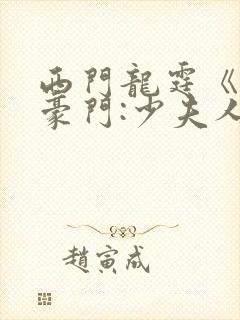 西門龍霆《
豪門:少夫人
趙寅成